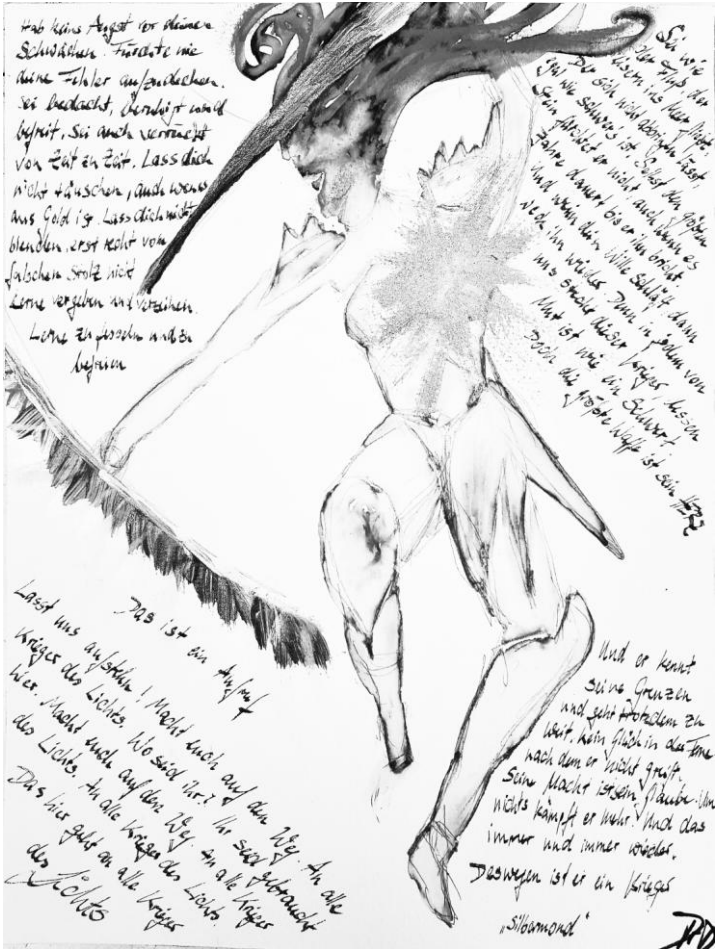 Hab keine Angst vor deinen
Schwächen. Fürchte nie
deine Fehler aufzudecken.
Sei bedacht, beruhigt und
befreit, Sei auch verrückt
von Zeit zu Zeit. Lass dich
nicht täuschen, auch wenns
aus Gold ist. Lass dich nicht
blenden, erst recht vom
falschen Stolz nicht
Lerne vergeben und verzeihen.
Lerne zu fesseln und zu
befreien
Sei wie
der Fluß der
eisern ins Meer fließt.
Der sich nicht abbringen lässt,
egal wie schwer's ist. Selbst den größten
Stein fürchtet er nicht, auch wenn es
Jahre dauert bis er ihn bricht.
Und wenn dein Wille schläft, dann
weck ihn wieder. Denn in jedem von
uns steckt dieser Krieger, dessen
Mut ist wie ein Schwert
Doch die größte Waffe ist sein HERZ
Das ist ein Aufruf
Lasst uns aufstehn! Macht euch auf den Weg. An alle
Krieger des Lichts. Wo seid ihr? Ihr seid gebraucht
hier. Macht euch auf den Weg. An alle Krieger
des Lichts. An alle Krieger des Lichts.
Das hier geht an alle Krieger
des Lichts
Und er kennt
seine Grenzen
und geht trotzdem zu
weit. Kein Glück in der Ferne
nach dem er nicht greift.
Seine Macht ist sein Glaube. Um
nichts kämpft er mehr. Und das
immer und immer wieder.
Deswegen ist er ein Krieger
„Silbermond"